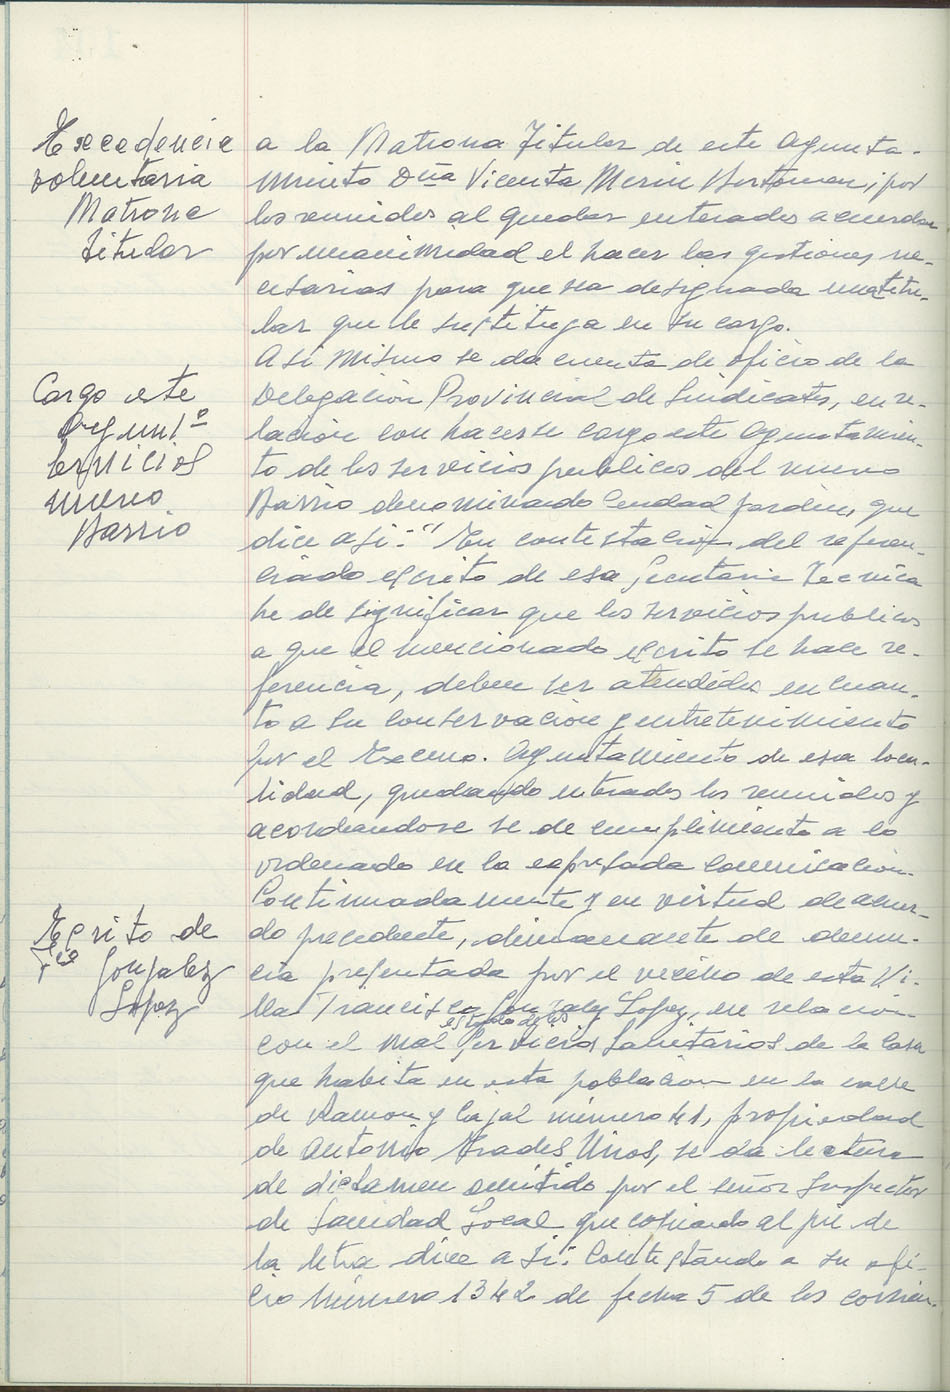 Excedencia
voluntaria
Matrona
titular
a la Matrona Titular de este Ayunta-
miento Dña Vicenta Merin Bertomeu, por
los reunidos al quedar enterados acuerdan
por unanimidad el hacer las gestiones ne-
cesarias para que sea designada una titu-
lar que le sustituya en su cargo.
Cargo este
Ayunt.º
servicios
nuevo
Barrio
Asi mismo se da cuenta de oficio de la
Delegación Provincial de Sindicatos, en re-
lación con hacerse cargo este Ayuntamien-
to de los servicios publicos del nuevo
Barrio denominado Ciudad Jardin, que
dice asi: "En contestación del referen-
ciado escrito de esa Secretaria Tecnica
he de significar que los servicios publicos
a que el mencionado escrito se hace re-
ferencia, deben ser atendidos en cuan-
to a su conservación y entretenimiento
por el Excmo. Ayuntamiento de esa loca-
lidad, quedando enterados los reunidos y
acordandose se de cumplimiento a lo
ordenado en la expresada comunicacion.
Escrito de
Fco Gonzalez
Lopez
Continuadamente y en virtud de acuer-
do precedente, dimanante de denun-
cia presentada por el vecino de esta Vi-
lla Francisco Gonzalez Lopez, en relacion
estado de los
con el mal servicios sanitarios de la casa
que habita en esta poblacion en la calle
de Ramon y Cajal número 41, propiedad
de Antonio Prades Viños, se da lectura
de dictamen emitido por el señor Inspector
de Sanidad Local que copiando al pie de
la letra dice asi: Contestando a su ofi-
cio número 1342 de fecha 5 de los corrien-